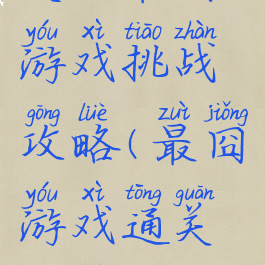 yóu xì tiāo zhàn
游戏挑战
gōng lüè zuì jiǒng
攻略(最囧
yóu xì tōng guān
游戏通关